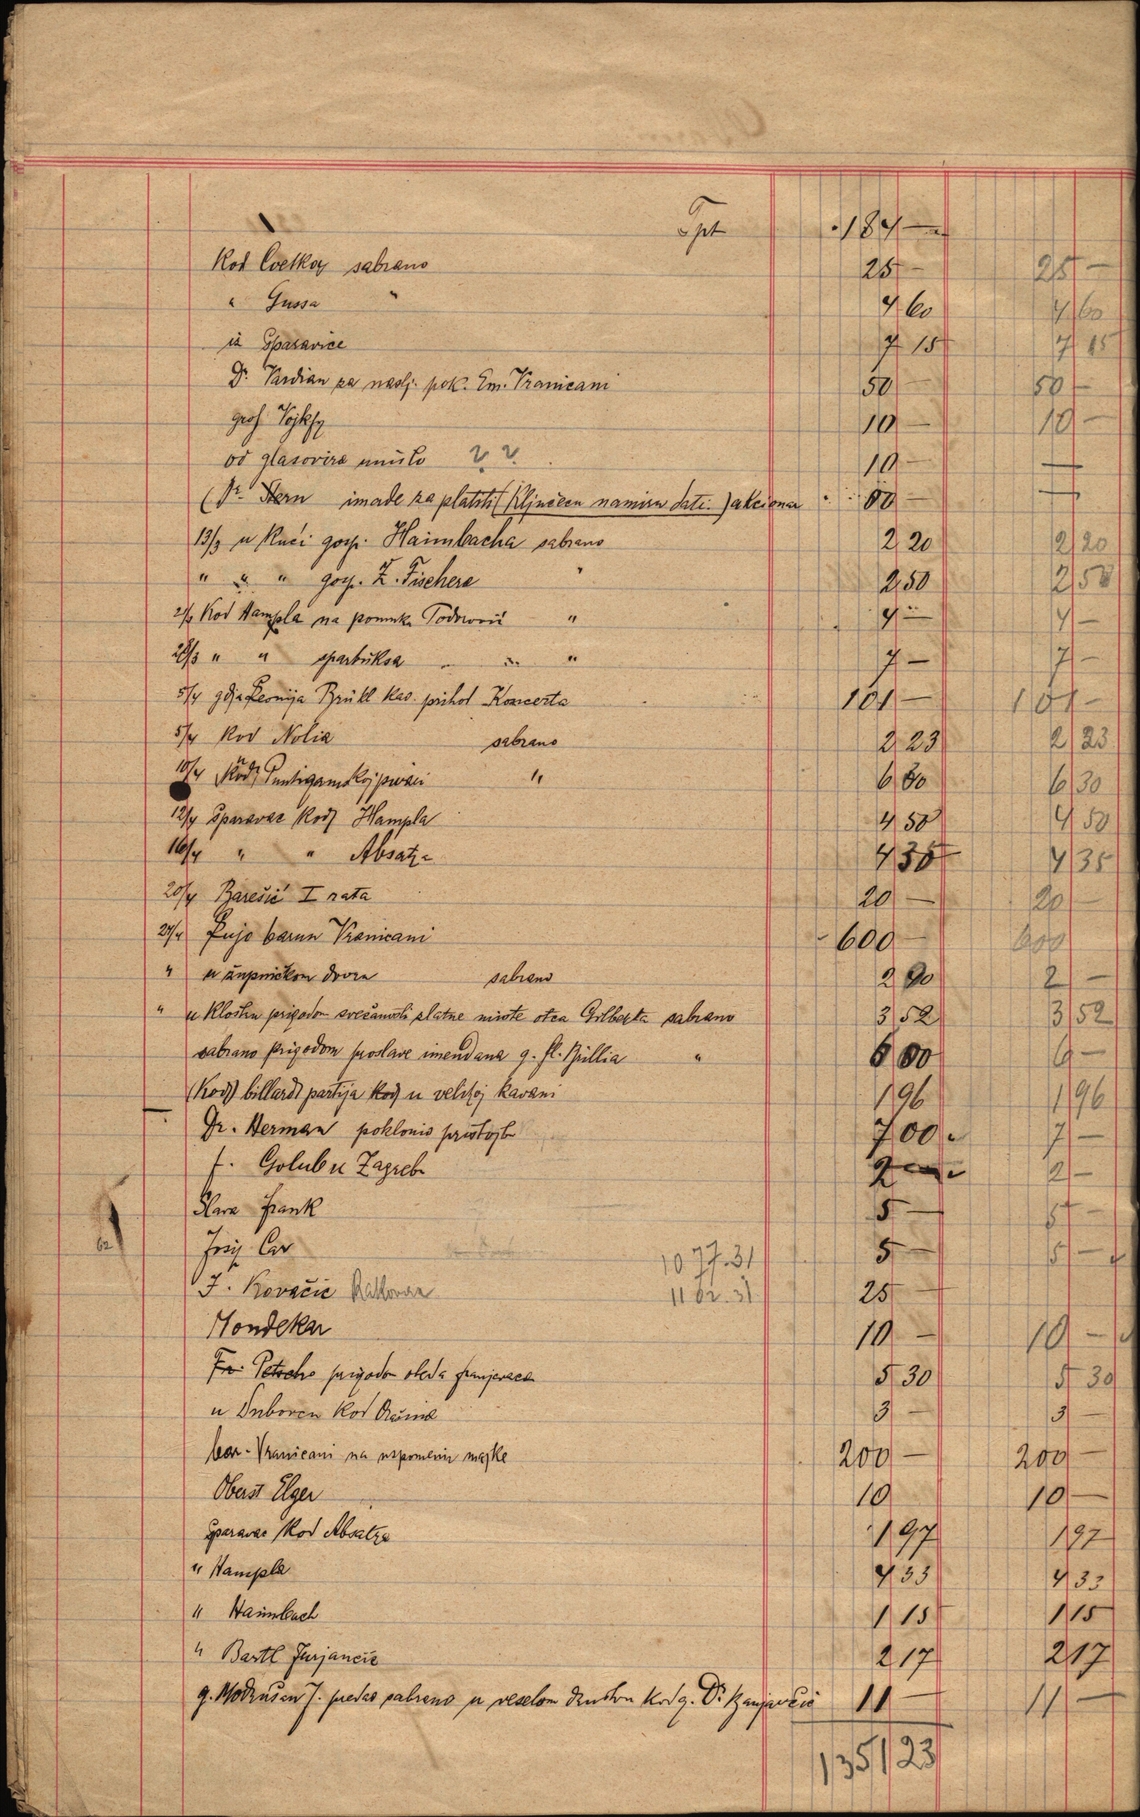 Tpt 184 —
Kod Cvetkoy sabrano 25 — 25 —
" Gussa " 4 60 4 60
iz Šparavice 7 15 7 15
Dr. Vardian za naslj. pok. Em. Vranicani 50 — 50 —
grof Vojkfy 10 — 10 —
od glasovira unišlo ? ? 10 — —
(Dr. Stern imade za platiti (Ključecu namiru dati.) akcionar 00 — —
13/3 u kući gosp. Haimbacha sabrano 2 20 2 20
" " " gosp. Ž. Fischera " 2 50 2 50
2/3 Kod Hampla na Todorović " 4 — 4 —
28/3 " " sparbüksa " " 7 — 7 —
5/4 gdja Leonija Brükl kao prihod Koncerta 101 — 101 —
5/4 Kod Nolia sabrano 2 23 2 23
10/4 Kod Puntigamskoj pivari " 6 30 6 30
12/4 Šparavac Kod Hampla 4 50 4 50
16/4 " " Absatza 4 35 4 35
20/4 Barešić I rata 20 — 20 —
24/4 Lujo barun Vranicani 600 — 600
" u župničkom dvoru sabrano 2 00 2 —
" u Kloštru prigodom svečanosti zlatne misote otca Gilberta sabrano 3 52 3 52
sabrano prigodom proslave imendana g. fl. Büllia " 6 00 6 —
(Kod) billard partija kod u velikoj kavani 1 96 1 96
Dr. Herman poklonio pristojbu 7 00 7 —
f. Golub u Zagrebu 2 — 2 —
Slava Frank 5 — 5 —
62
Josip Car 1077.31 5 — 5 —
J. Kovačić Rakovac 1102.31 25 —
Mondekar 10 — 10 —
Fr. Petsche prigodom obeda franjevaca 5 30 5 30
u Dubovcu Kod 3 — 3 —
bar. Vranicani na uspomenu majke 200 — 200 —
Oberst Elger 10 10 —
Šparavac Kod Absatza 1 97 1 97
" Hampla 4 33 4 33
" Haimbach 1 15 1 15
" Bartl Jurjančić 2 17 2 17
g. Modrušan J. predao sabrano u veselom društvu kod g. Dr. Banjavčić 11 — 11 —
1351 23